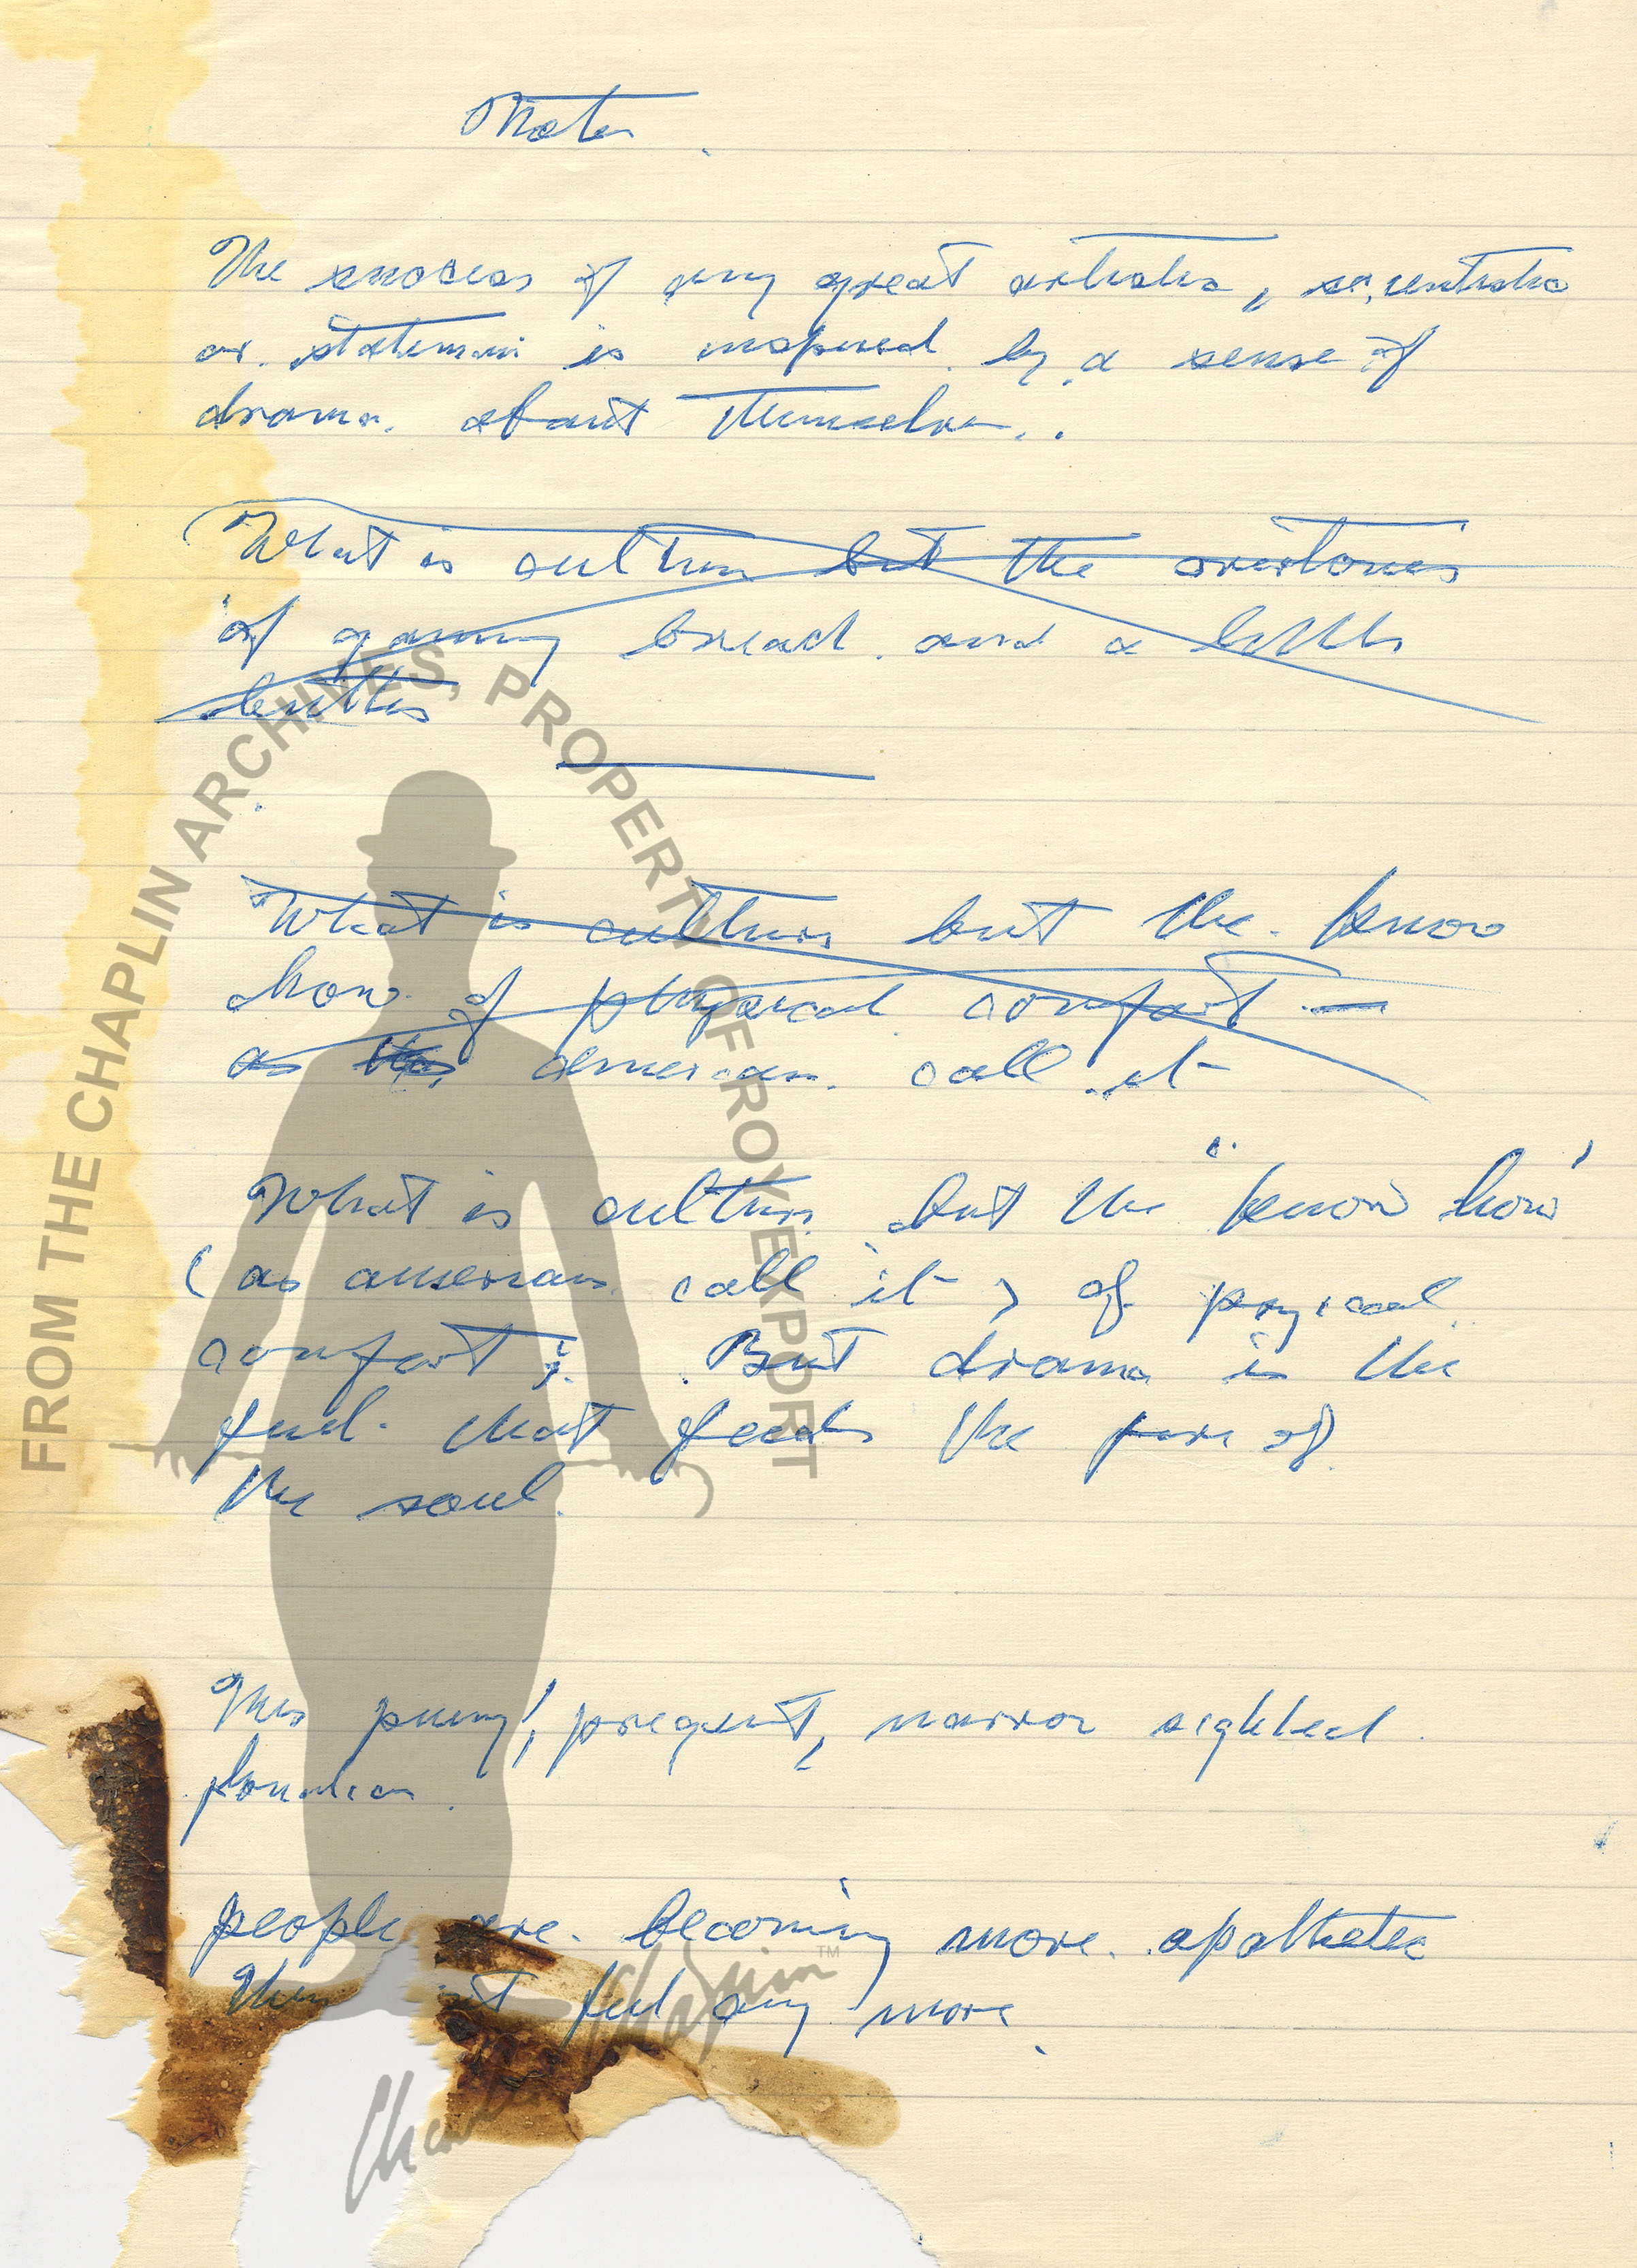 Notes
The success of any great artists, scientists
or statesman is inspired by a sense of
drama about themselves.
What is culture but the overtones
of gaining bread and a little
butter
What is culture but the know
how of physical comfort —
as the american call it
What is culture but the "know how"
(as americans call it) of pysical
comfort; But drama is the
fuel that feeds the fire of
the soul.
This puny, narrow sighted
people are becoming more apathetic
feel any more.
FROM THE CHAPLIN ARCHIVES, PROPERTY OF ROY EXPORT
Charles Chaplin™